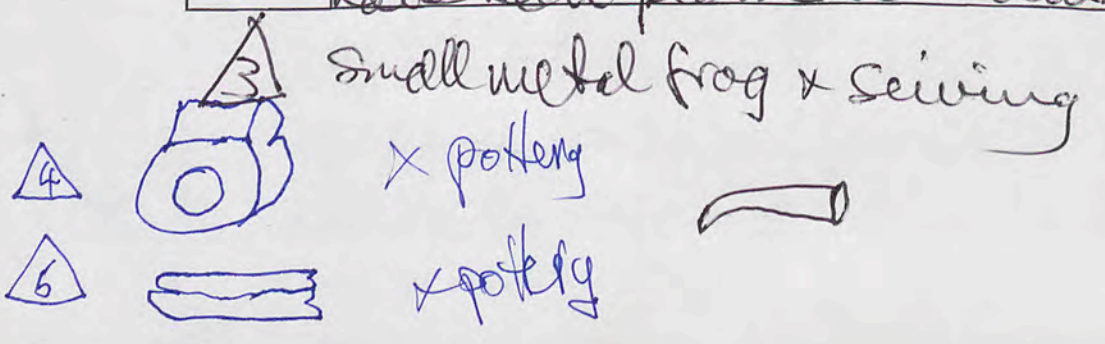 3 small metal frog x Seiving
4 x pottery
6 x pottery